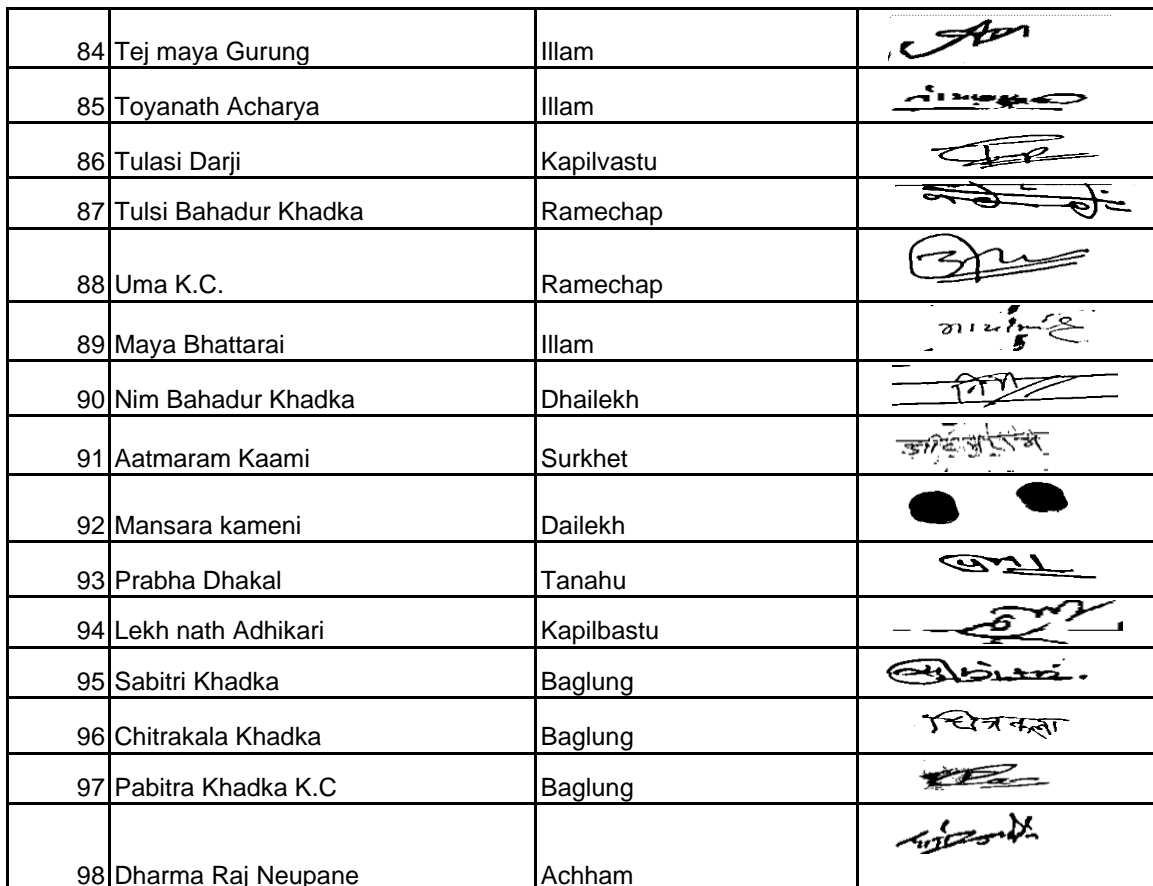 84 Tej maya Gurung Illam
85 Toyanath Acharya Illam
86 Tulasi Darji Kapilvastu
87 Tulsi Bahadur Khadka Ramechap
88 Uma K.C. Ramechap
89 Maya Bhattarai Illam
90 Nim Bahadur Khadka Dhailekh
91 Aatmaram Kaami Surkhet
92 Mansara kameni Dailekh
93 Prabha Dhakal Tanahu
94 Lekh nath Adhikari Kapilbastu
95 Sabitri Khadka Baglung
96 Chitrakala Khadka Baglung चित्रकला
97 Pabitra Khadka K.C Baglung
98 Dharma Raj Neupane Achham